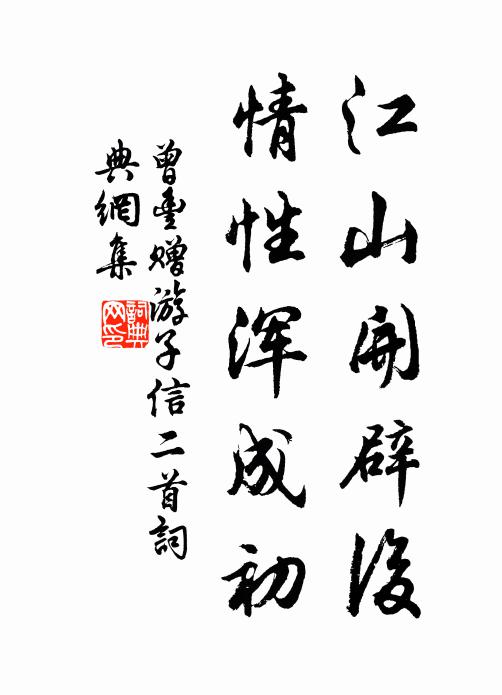 江山開辟後
情性渾成初
曾豊赠游子信二首詞
典網集
詞典
网印